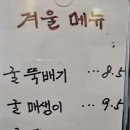 겨울 메뉴
굴 뚝배기 ... 8.5
굴 매생이 ... 9.5